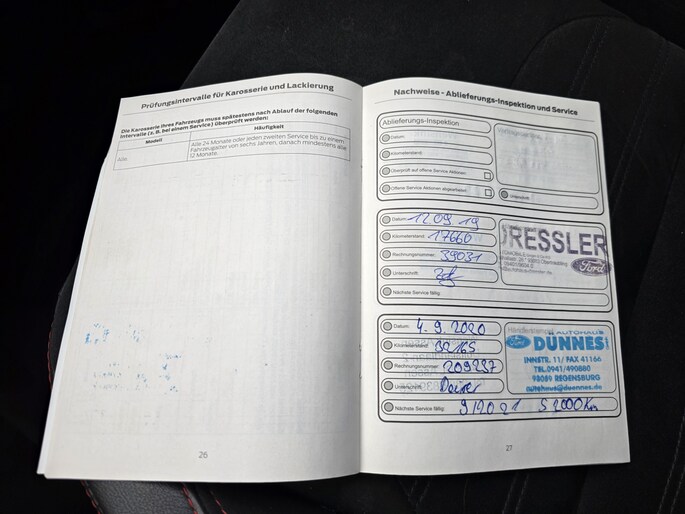 Prüfungsintervalle für Karosserie und Lackierung
Die Karosserie Ihres Fahrzeugs muss spätestens nach Ablauf der folgenden
Intervalle (z. B. bei einem Service) überprüft werden:
Modell Häufigkeit
Alle. Alle 24 Monate oder jeden zweiten Service bis zu einem
Fahrzeugalter von sechs Jahren, danach mindestens alle
12 Monate.
26
Nachweise - Ablieferungs-Inspektion und Service
Ablieferungs-Inspektion
Datum:
Kilometerstand:
Überprüft auf offene Service Aktionen
Offene Service Aktionen abgearbeitet
Unterschrift:
Datum: 12 09 19
Kilometerstand: 17660
Rechnungsnummer: 39031
Unterschrift:
Nächste Service fällig:
DRESSLER
Ford
Datum: 4. 9. 2020
Kilometerstand: 32165
Rechnungsnummer: 209237
Unterschrift:
Nächste Service fällig: 9/2021 52000Km
AUTOHAUS
DÜNNES
INNSTR. 11/ FAX 41166
TEL.0941/490880
93059 REGENSBURG
autohaus@duennes.de
27